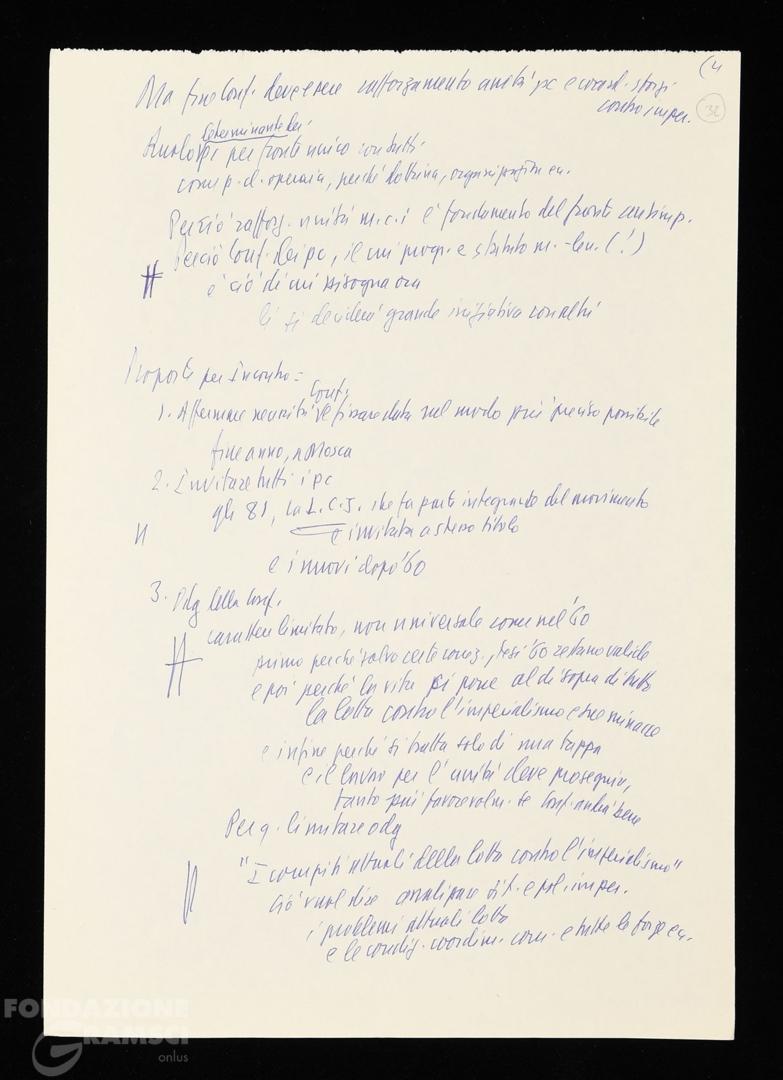 (4
32
Ma fine Conf. deve essere rafforzamento unità pc e coord. sforzi
contro imper.
determinante dei
per fronte unico con tutti
com. p. d. operaia, perché dottrina, organizzazione ecc.
Perciò rafforz. unità m.c.i è fondamento del fronte antimp.
Perciò Conf. dei pc, il cui progr. e statuto m.-len. (!)
è ciò di cui bisogna ora
lì si deciderà grande iniziativa con altri
Proposte per Incontro =
Conf.
1. Affermare necessità e fissare data nel modo più preciso possibile
fine anno, a Mosca
2. Invitare tutti i pc
gli 81, la L.C.J. che fa parte integrante del movimento
è invitata a stesso titolo
e i nuovi dopo '60
3. Odg della Conf.
carattere limitato, non universale come nel '60
primo perché salvo certe corez., tesi '60 restano valide
e poi perché la vita pone al di sopra di tutto
la lotta contro l'imperialismo e sue minacce
e infine perché si tratta solo di una tappa
e il lavoro per l'unità deve proseguire,
tanto più favorevolm. se Conf. andrà bene
Per q. limitare odg
"I compiti attuali della lotta contro l'imperialismo"
ciò vuol dire analizzare sit. e pol. imper.
i problemi attuali lotta
e le condiz. coordin. com. e tutte le forze ecc.
FONDAZIONE
GRAMSCI
onlus